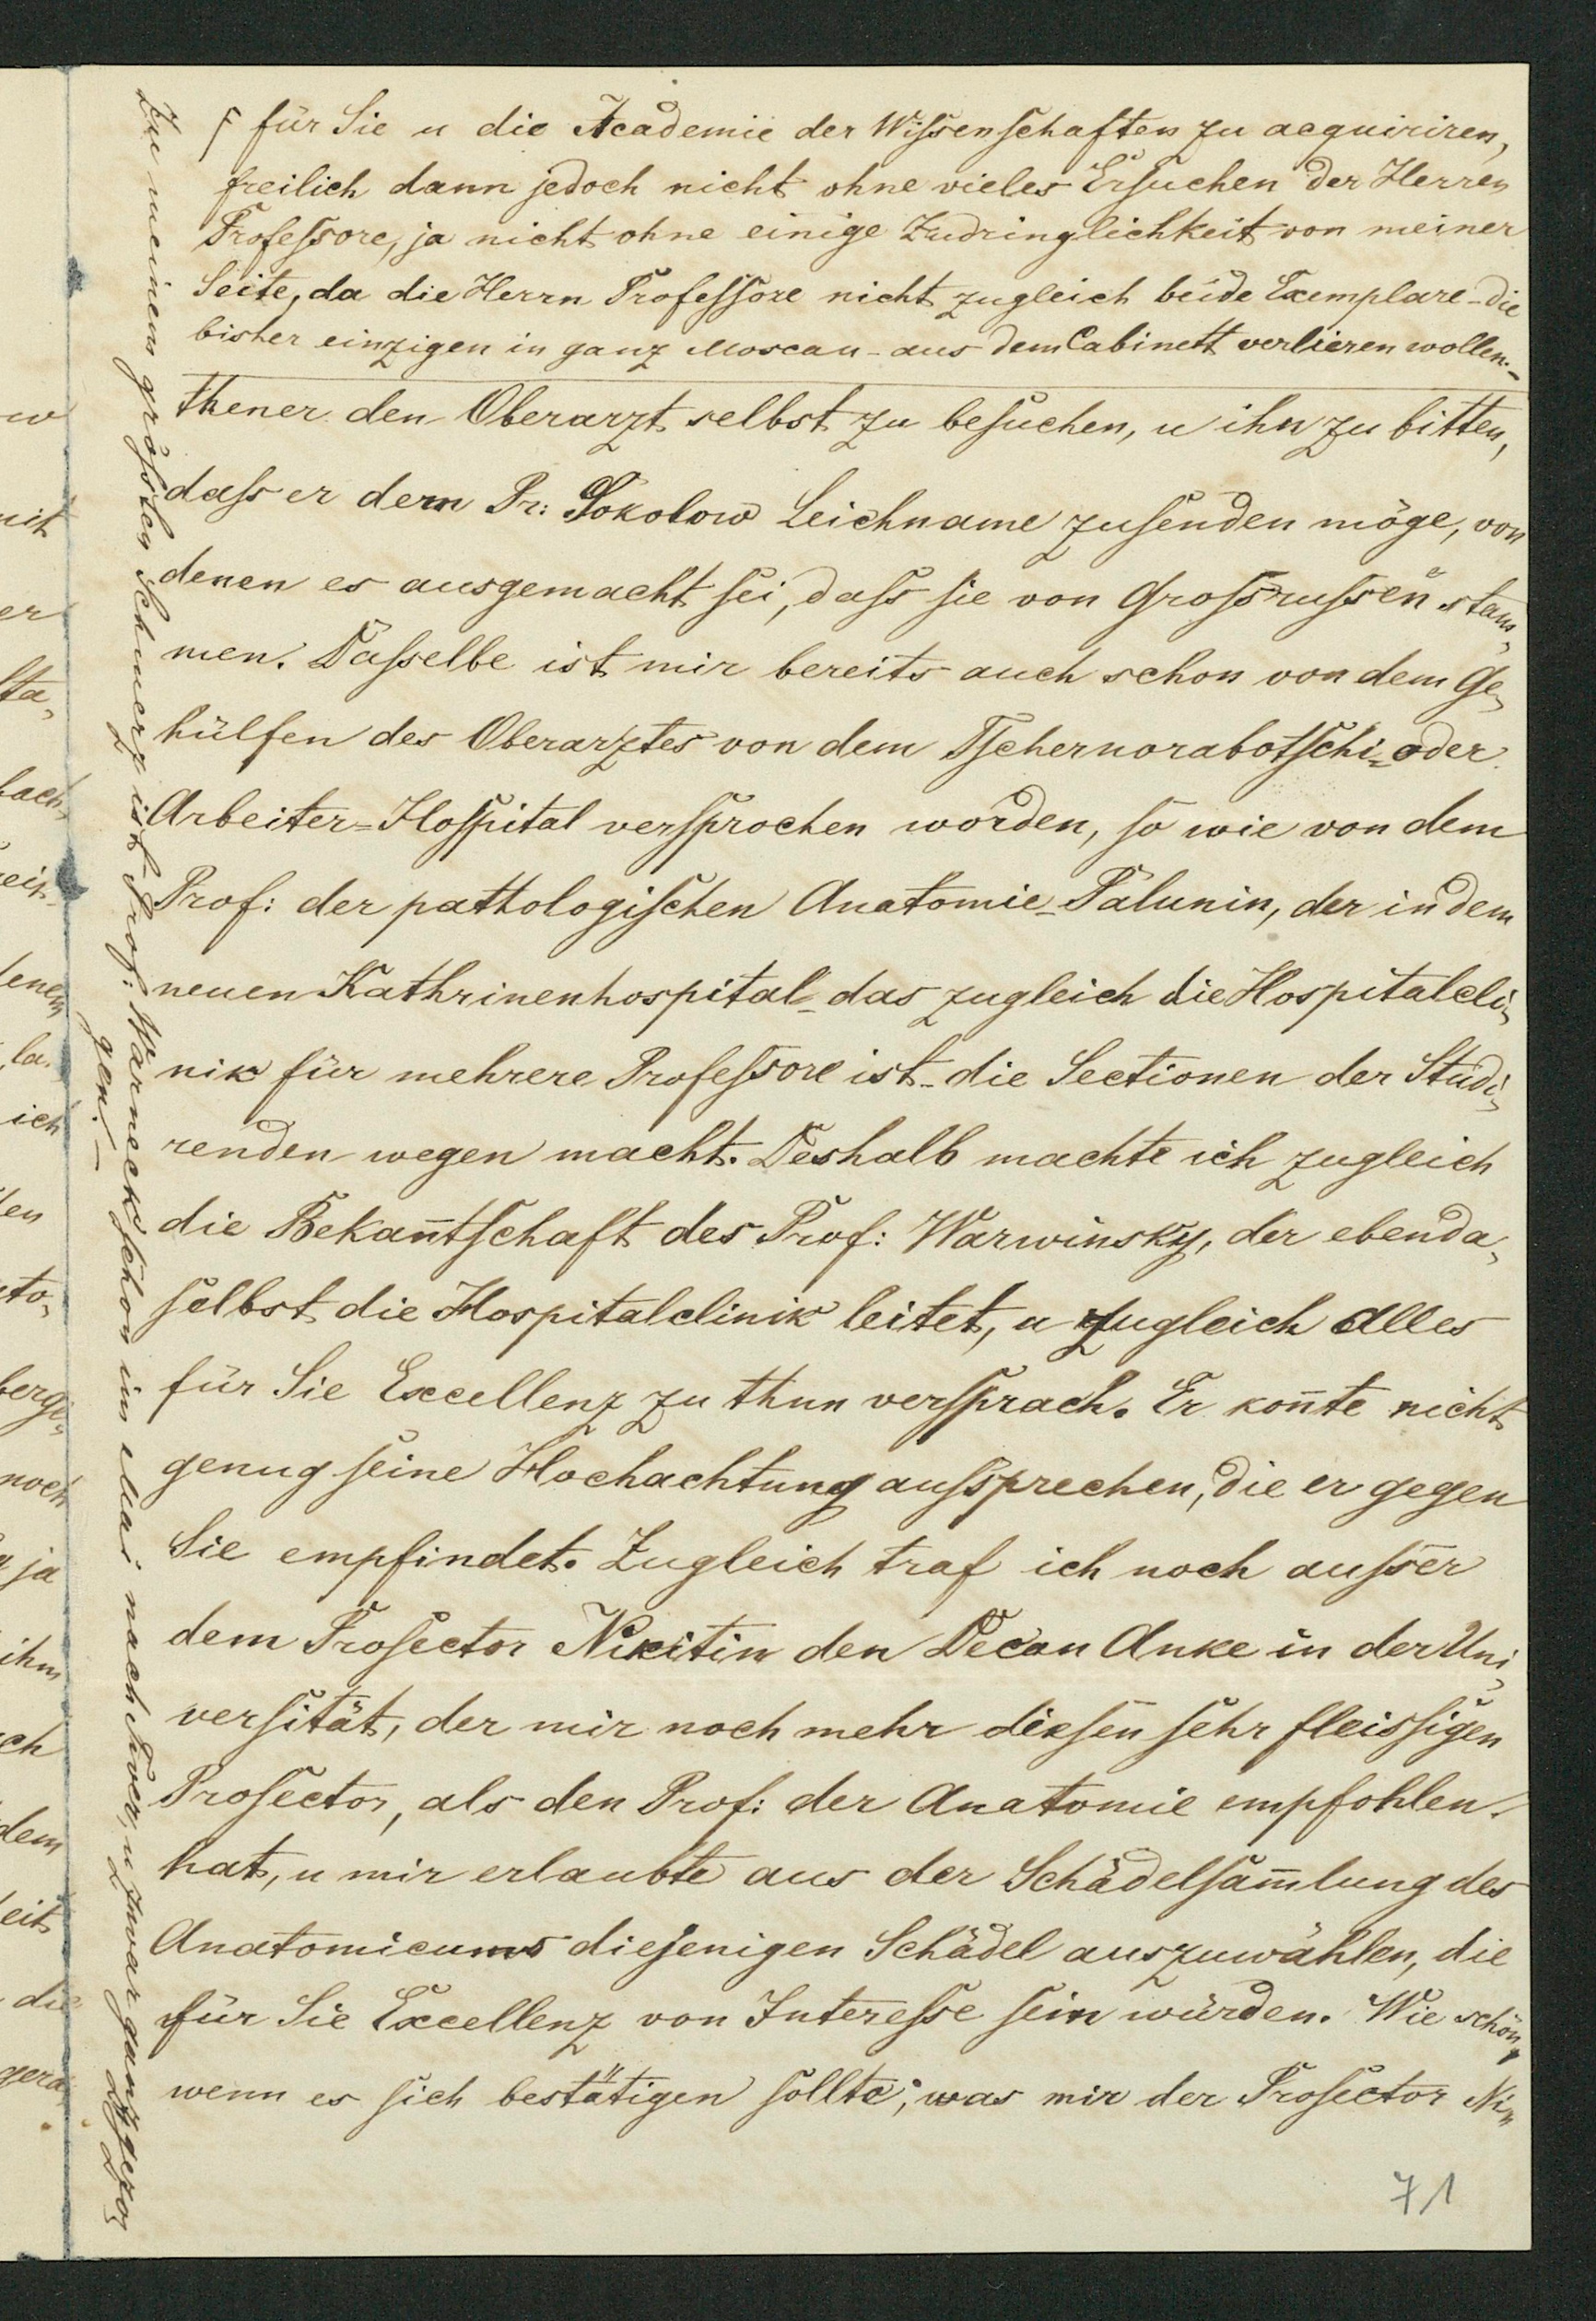 für Sie u die Academie der Wissenschaften zu acquiriren,
freilich dann jedoch nicht ohne vieles Ersuchen der Herren
Professore, ja nicht ohne einige Zudringlichkeit von meiner
Seite, da die Herrn Professore nicht zugleich beide Exemplare - die
bisher einzigen in ganz Moscau - aus dem Cabinett verlieren wollen. -
thener den Oberarzt selbst zu besuchen, u ihn zu bitten,
dass er dem Pr: Sokolow Leichname zusenden möge, von
denen es ausgemacht sei, dass sie von Grossrussen stam„
men. Dasselbe ist mir bereits auch schon von dem Ge„
hülfen des Oberarztes von dem Tschernorabotschi= oder
Arbeiter=Hospital versprochen worden, so wie von dem
Prof: der pathologischen Anatomie - Palunin, der in dem
neuen Kathrinenhospital - das zugleich die Hospitalcli„
nik für mehrere Professore ist - die Sectionen der Studi„
renden wegen macht. Deshalb machte ich zugleich
die Bekan̄tschaft des Prof: Warwinsky, der ebenda„
selbst die Hospitalclinik leitet, u zugleich alles
für Sie Excellenz zu thun versprach. Er kon̄te nicht
genug seine Hochachtung aussprechen, die er gegen
Sie empfindet. Zugleich traf ich noch ausser
dem Prosector Nikitin den Decan Anke in der Uni„
versität, der mir noch mehr diesen sehr fleissigen
Prosector, als den Prof: der Anatomie empfohlen
hat, u mir erlaubte aus der Schädelsam̄lung des
Anatomicums diejenigen Schädel auszuwählen, die
für Sie Excellenz von Interesse sein würden. Wie schön,
wenn es sich bestätigen sollte, was mir der Prosector Ni„
71
Zu meinem grössten Schmerz ist Prof: Warneck schon im Mai nach Twer, u zwar ganz gezo
gen! -
w
nit
er
sta„
bach„
ein„
lenem
la„
ich
len
sto„
bergi„
noch
ja
ihm
ch
dem
eit
die
gera„